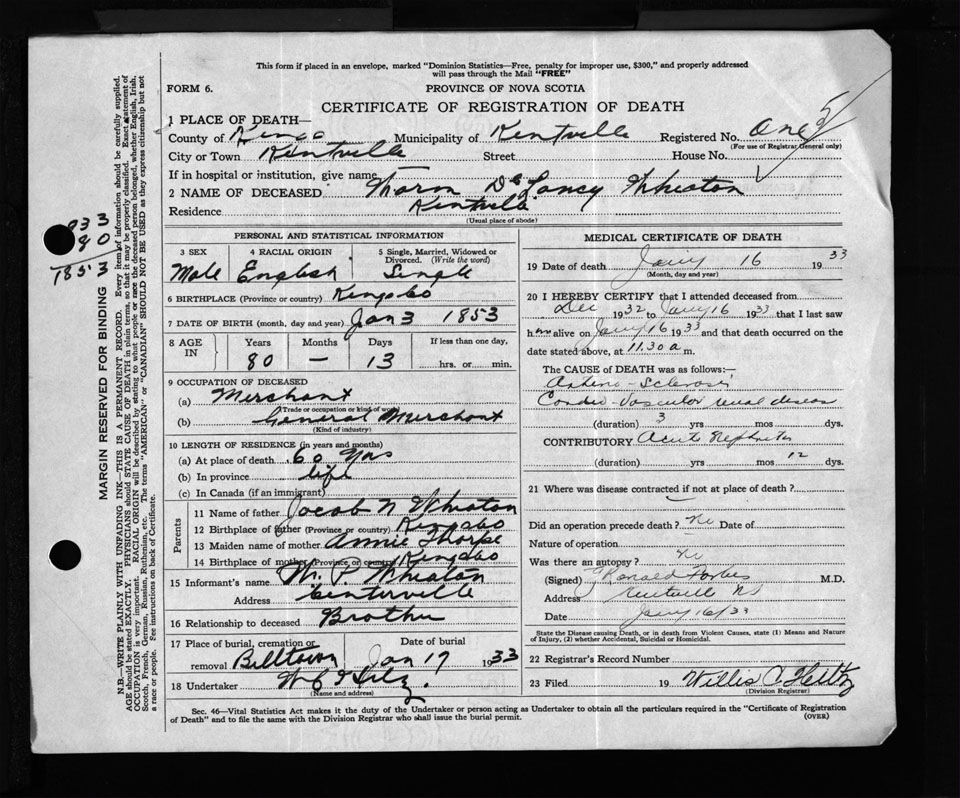 This form if placed in an envelope, marked "Dominion Statistics—Free, penalty for improper use, $300," and properly addressed
will pass through the Mail "FREE"
FORM 6.
PROVINCE OF NOVA SCOTIA
CERTIFICATE OF REGISTRATION OF DEATH
1 PLACE OF DEATH—
County of Kings Municipality of Kentville Registered No. One
(For use of Registrar General only)
City or Town Kentville Street House No.
If in hospital or institution, give name
2 NAME OF DECEASED De Lancy Wheaton
Residence Kentville
(Usual place of abode)
PERSONAL AND STATISTICAL INFORMATION
3 SEX 4 RACIAL ORIGIN 5 Single, Married, Widowed or
Divorced. (Write the word)
Male English Single
6 BIRTHPLACE (Province or country) Kings Co
7 DATE OF BIRTH (month, day and year) Jan 3 1853
8 AGE IN Years Months Days If less than one day,
80 — 13 hrs. or min.
9 OCCUPATION OF DECEASED
(a) Merchant
(Trade or occupation or kind of work)
(b) General Merchant
(Kind of industry)
10 LENGTH OF RESIDENCE (in years and months)
(a) At place of death 60 Yrs
(b) In province life
(c) In Canada (if an immigrant)
Parents
11 Name of father Jacob N Wheaton
12 Birthplace of father (Province or country) Kings Co
13 Maiden name of mother Annie Thorpe
14 Birthplace of mother (Province or country) Kings Co
15 Informant's name W. P. Wheaton
Address Centerville
16 Relationship to deceased Brother
17 Place of burial, cremation or Date of burial
removal Billtown Jan 17 1933
18 Undertaker
(Name and address)
MEDICAL CERTIFICATE OF DEATH
19 Date of death Jany 16 1933
(Month, day and year)
20 I HEREBY CERTIFY that I attended deceased from
Dec 1932 to Jany 16 1933 that I last saw
him alive on Jany 16 1933 and that death occurred on the
date stated above, at 11.30 a m.
The CAUSE of DEATH was as follows:—
Arterio-Sclerosis
Cardio-Vascular renal disease
(duration) 3 yrs mos dys.
CONTRIBUTORY Acute Nephritis
(duration) yrs mos 12 dys.
21 Where was disease contracted if not at place of death?
Did an operation precede death? No Date of
Nature of operation
Was there an autopsy? No
(Signed) Ronald Forbes M.D.
Address Kentville NS
Date Jany 16/33
State the Disease causing Death, or in death from Violent Causes, state (1) Means and Nature
of Injury, (2) whether Accidental, Suicidal or Homicidal.
22 Registrar's Record Number
23 Filed 19 Willis C.
(Division Registrar)
Sec. 46—Vital Statistics Act makes it the duty of the Undertaker or person acting as Undertaker to obtain all the particulars required in the "Certificate of Registration
of Death" and to file the same with the Division Registrar who shall issue the burial permit.
(OVER)
MARGIN RESERVED FOR BINDING
N.B.—WRITE PLAINLY WITH UNFADING INK—THIS IS A PERMANENT RECORD. Every item of information should be carefully supplied.
AGE should be stated EXACTLY. PHYSICIANS should STATE CAUSE OF DEATH in plain terms, so that it may be properly classified. Exact statement of
OCCUPATION is very important. RACIAL ORIGIN will be described by stating to what people or race the deceased person belonged, whether English, Irish,
Scotch, French, German, Russian, Ruthenian, etc. The terms "AMERICAN" or "CANADIAN" SHOULD NOT BE USED as they express citizenship but not
a race or people. See instructions on back of Certificate.
933
80
1853